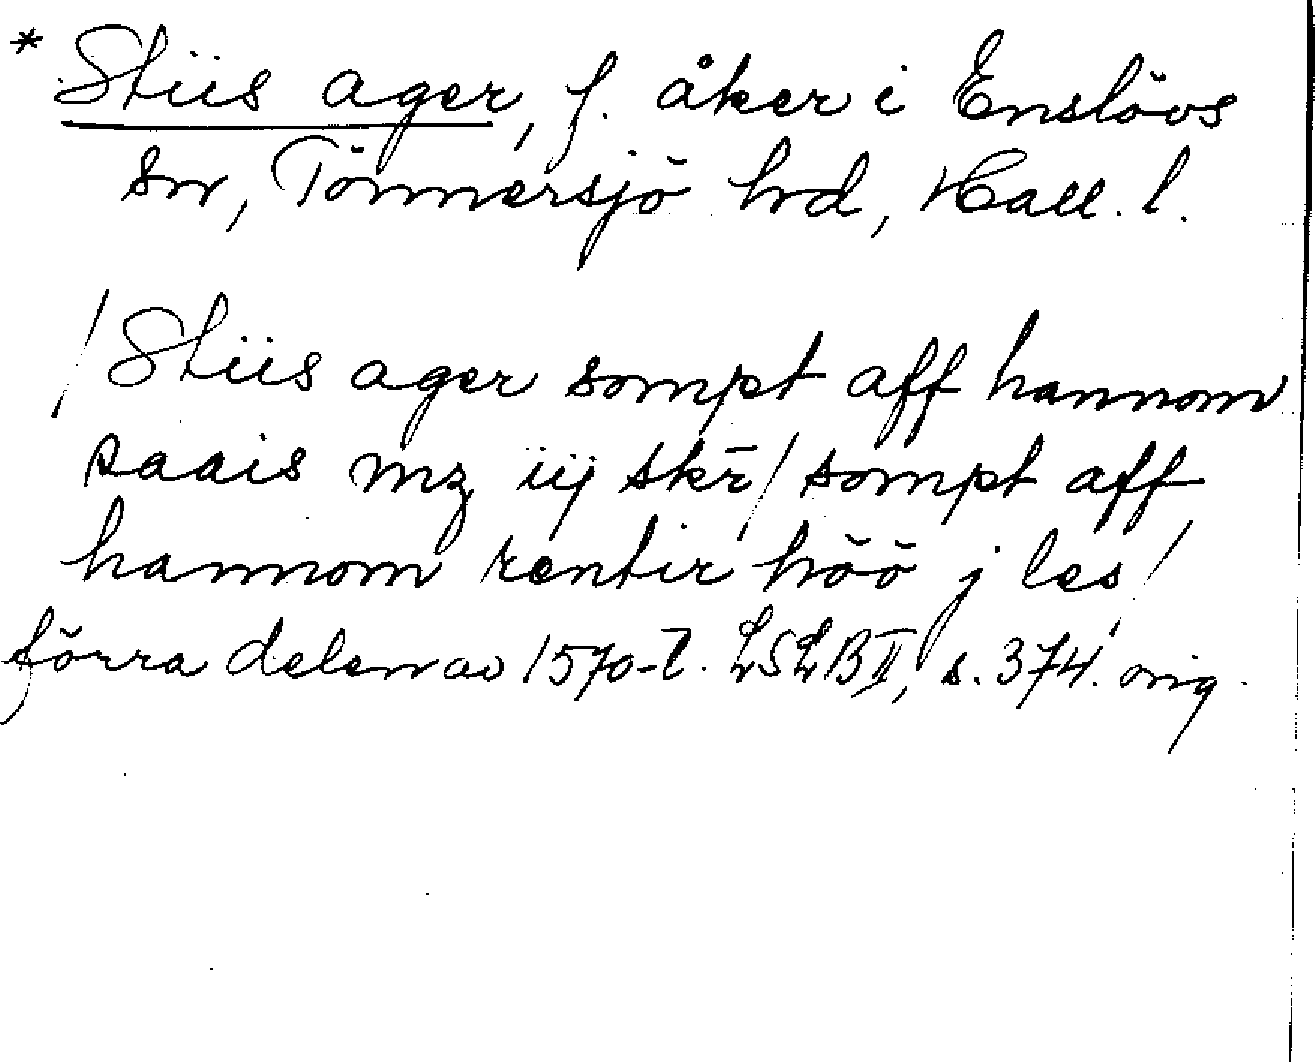 * Stiis ager, f. åker i Enslövs
sn, Tönnersjö hd, Hall. l.
/Stiis ager sompt aff hannom
saais mz iij skr̄/ sompt aff
hannom rentir höö j les/
förra delen av 1570-t. LSLB II, s. 374. orig.